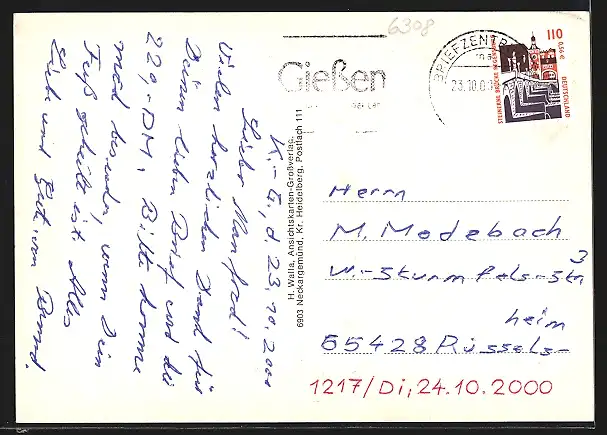 6308
Gießen
BRIEFZENTR
23.10.0
110
0,56 €
DEUTSCHLAND
STEINERNE BRÜCKE REGENSBURG
K.-G, d 23.10.2000
Lieber Manfred!
Vielen herzlichen Dank für
Deinen lieben Brief und die
220,- DM. Bitte komme
mich besuchen, wenn Dein
Fuß geheilt ist. Alles
Liebe und Gute, von Bernd.
H. Walla, Ansichtskarten-Großverlag,
6903 Neckargemünd, Kr. Heidelberg, Postfach 111
Herrn
M. Modebach
W.-Sturmfels-Str
3
heim
65428 Rüssels-
1217/Di, 24.10.2000